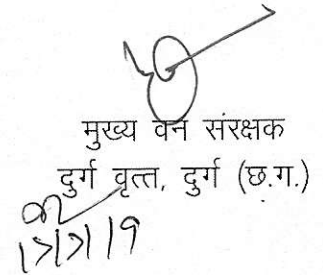 मुख्य वन संरक्षक
दुर्ग वृत्त, दुर्ग (छ.ग.)